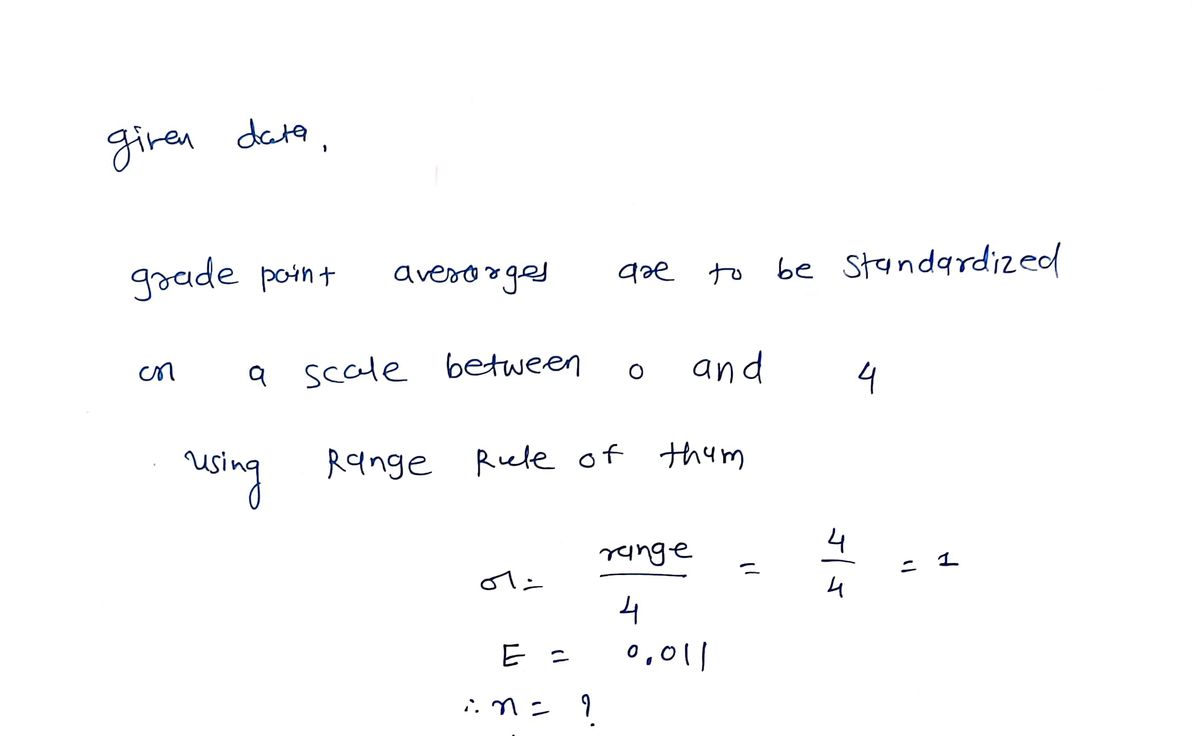 given data,
grade point averarges are to be standardized
on a scale between 0 and 4
using Range Rule of thum
σ = range / 4 = 4 / 4 = 1
E = 0.011
∴ n = ?